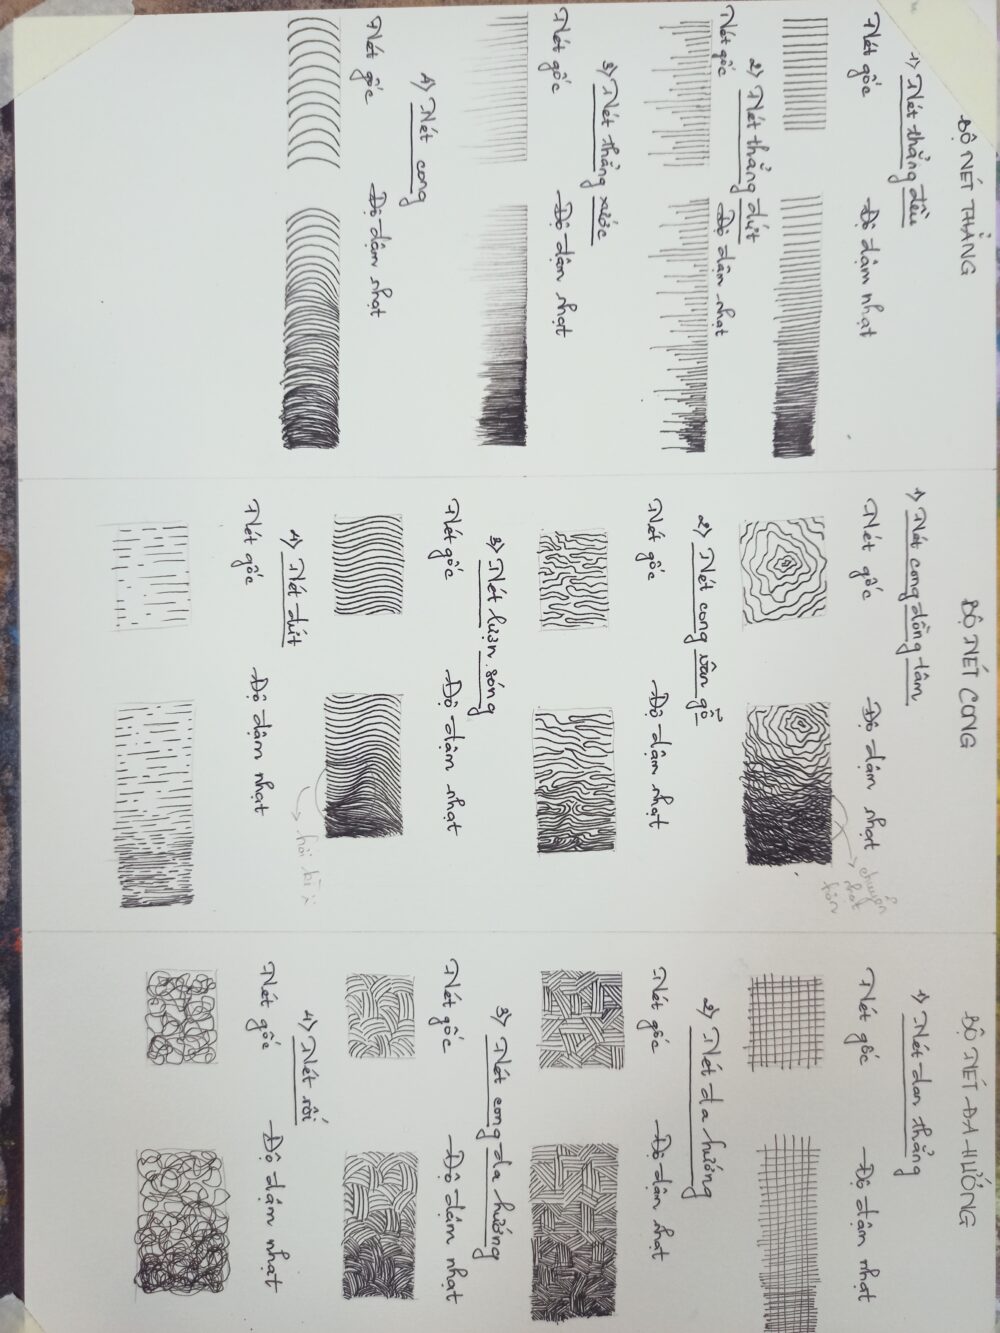 BỘ NÉT THẲNG
1) Nét thẳng đều
Nét gốc
Độ đậm nhạt
2) Nét thẳng đứt
Nét gốc
Độ đậm nhạt
3) Nét thẳng xước
Nét gốc
Độ đậm nhạt
4) Nét cong
Nét gốc
Độ đậm nhạt
BỘ NÉT CONG
1) Nét cong đồng tâm
Nét gốc
Độ đậm nhạt
chuyển
nhạt
2) Nét cong vân gỗ
Nét gốc
Độ đậm nhạt
3) Nét lượn sóng
Nét gốc
Độ đậm nhạt
hơi
4) Nét đứt
Nét gốc
Độ đậm nhạt
BỘ NÉT ĐA HƯỚNG
1) Nét đan thẳng
Nét gốc
Độ đậm nhạt
2) Nét đa hướng
Nét gốc
Độ đậm nhạt
3) Nét cong đa hướng
Nét gốc
Độ đậm nhạt
4) Nét rối
Nét gốc
Độ đậm nhạt